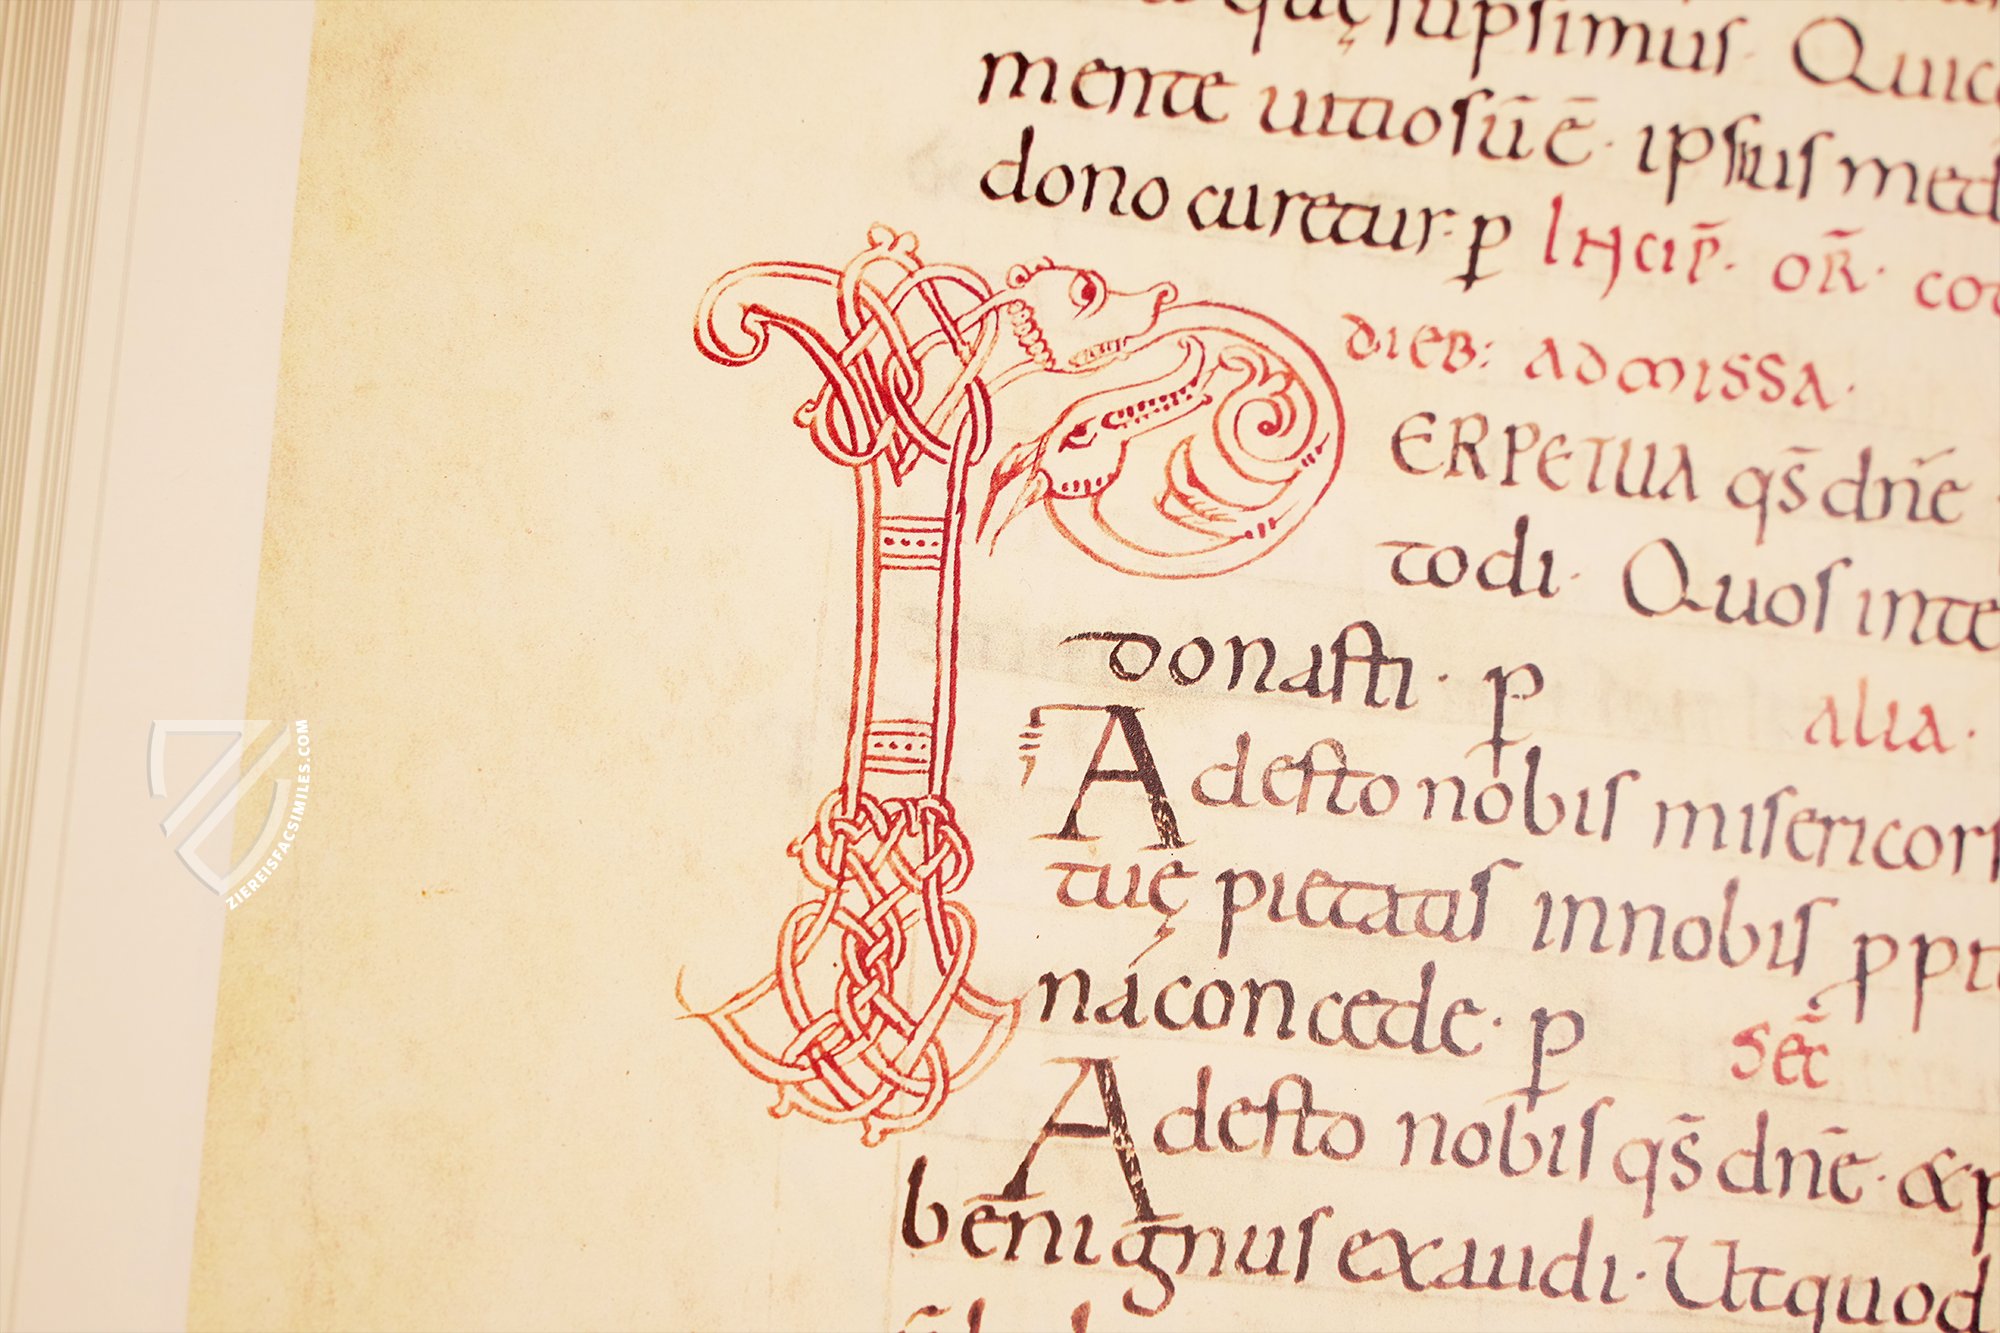 quę sūpsimus. Quic
mente uitiosū ē. ipsius med
dono curetur. p INCIP̄. OR̄. COT
DIEB: ADMISSA.
PERPETUA qs̄ dn̄e
todi. Quos inte
donasti. p
alia.
Adesto nobis misericors
tuę pietatis in nobis ppit
ná concede. p
Sec̄
Adesto nobis qs̄ dn̄e. & p
benignus exaudi. Ut quod
ZIEREISFACSIMILES.COM